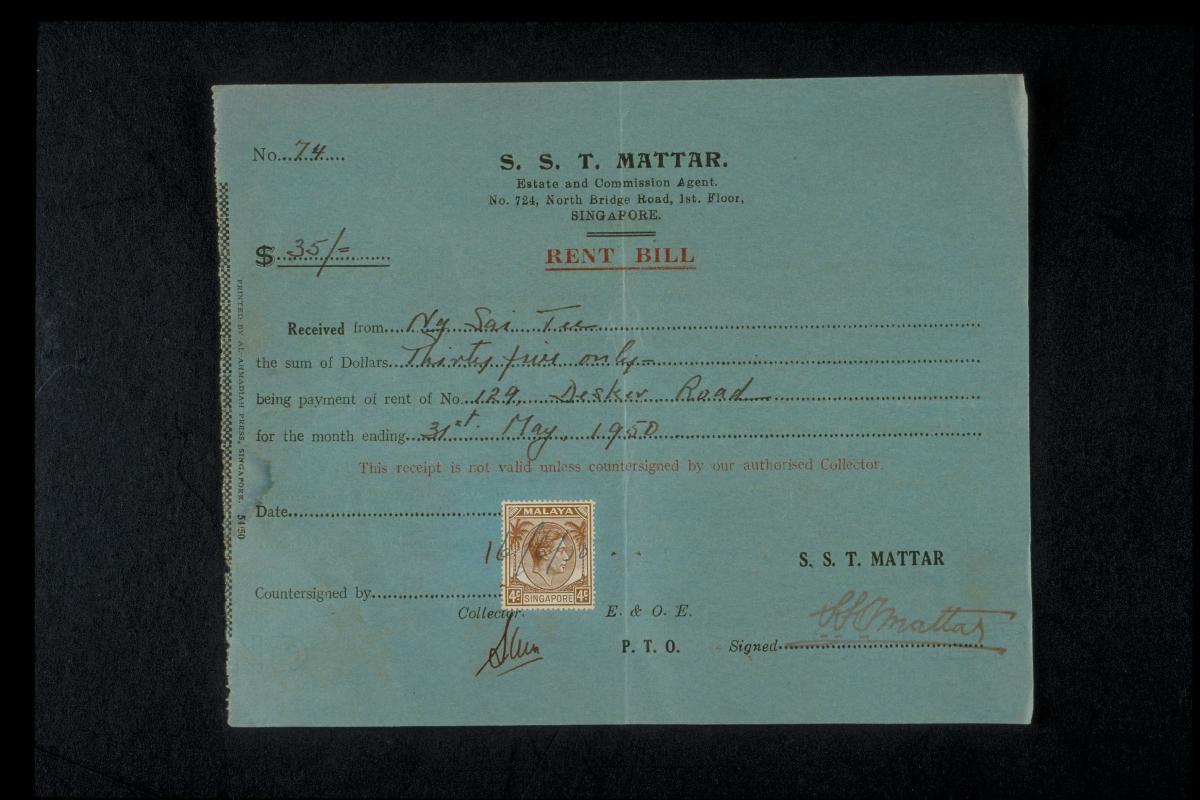 No. 74
S. S. T. MATTAR.
Estate and Commission Agent.
No. 724, North Bridge Road, 1st. Floor,
SINGAPORE.
$ 35/=
RENT BILL
Received from Ng Sai Tee
the sum of Dollars Thirty five only
being payment of rent of No. 129, Desker Road
for the month ending 31st. May, 1950
This receipt is not valid unless countersigned by our authorised Collector.
Date
MALAYA
4c SINGAPORE 4c
S. S. T. MATTAR
Countersigned by
Collector.
E. & O. E.
P. T. O.
Signed SSTMattar
PRINTED BY AL-AHMADIAH PRESS, SINGAPORE. 54/50